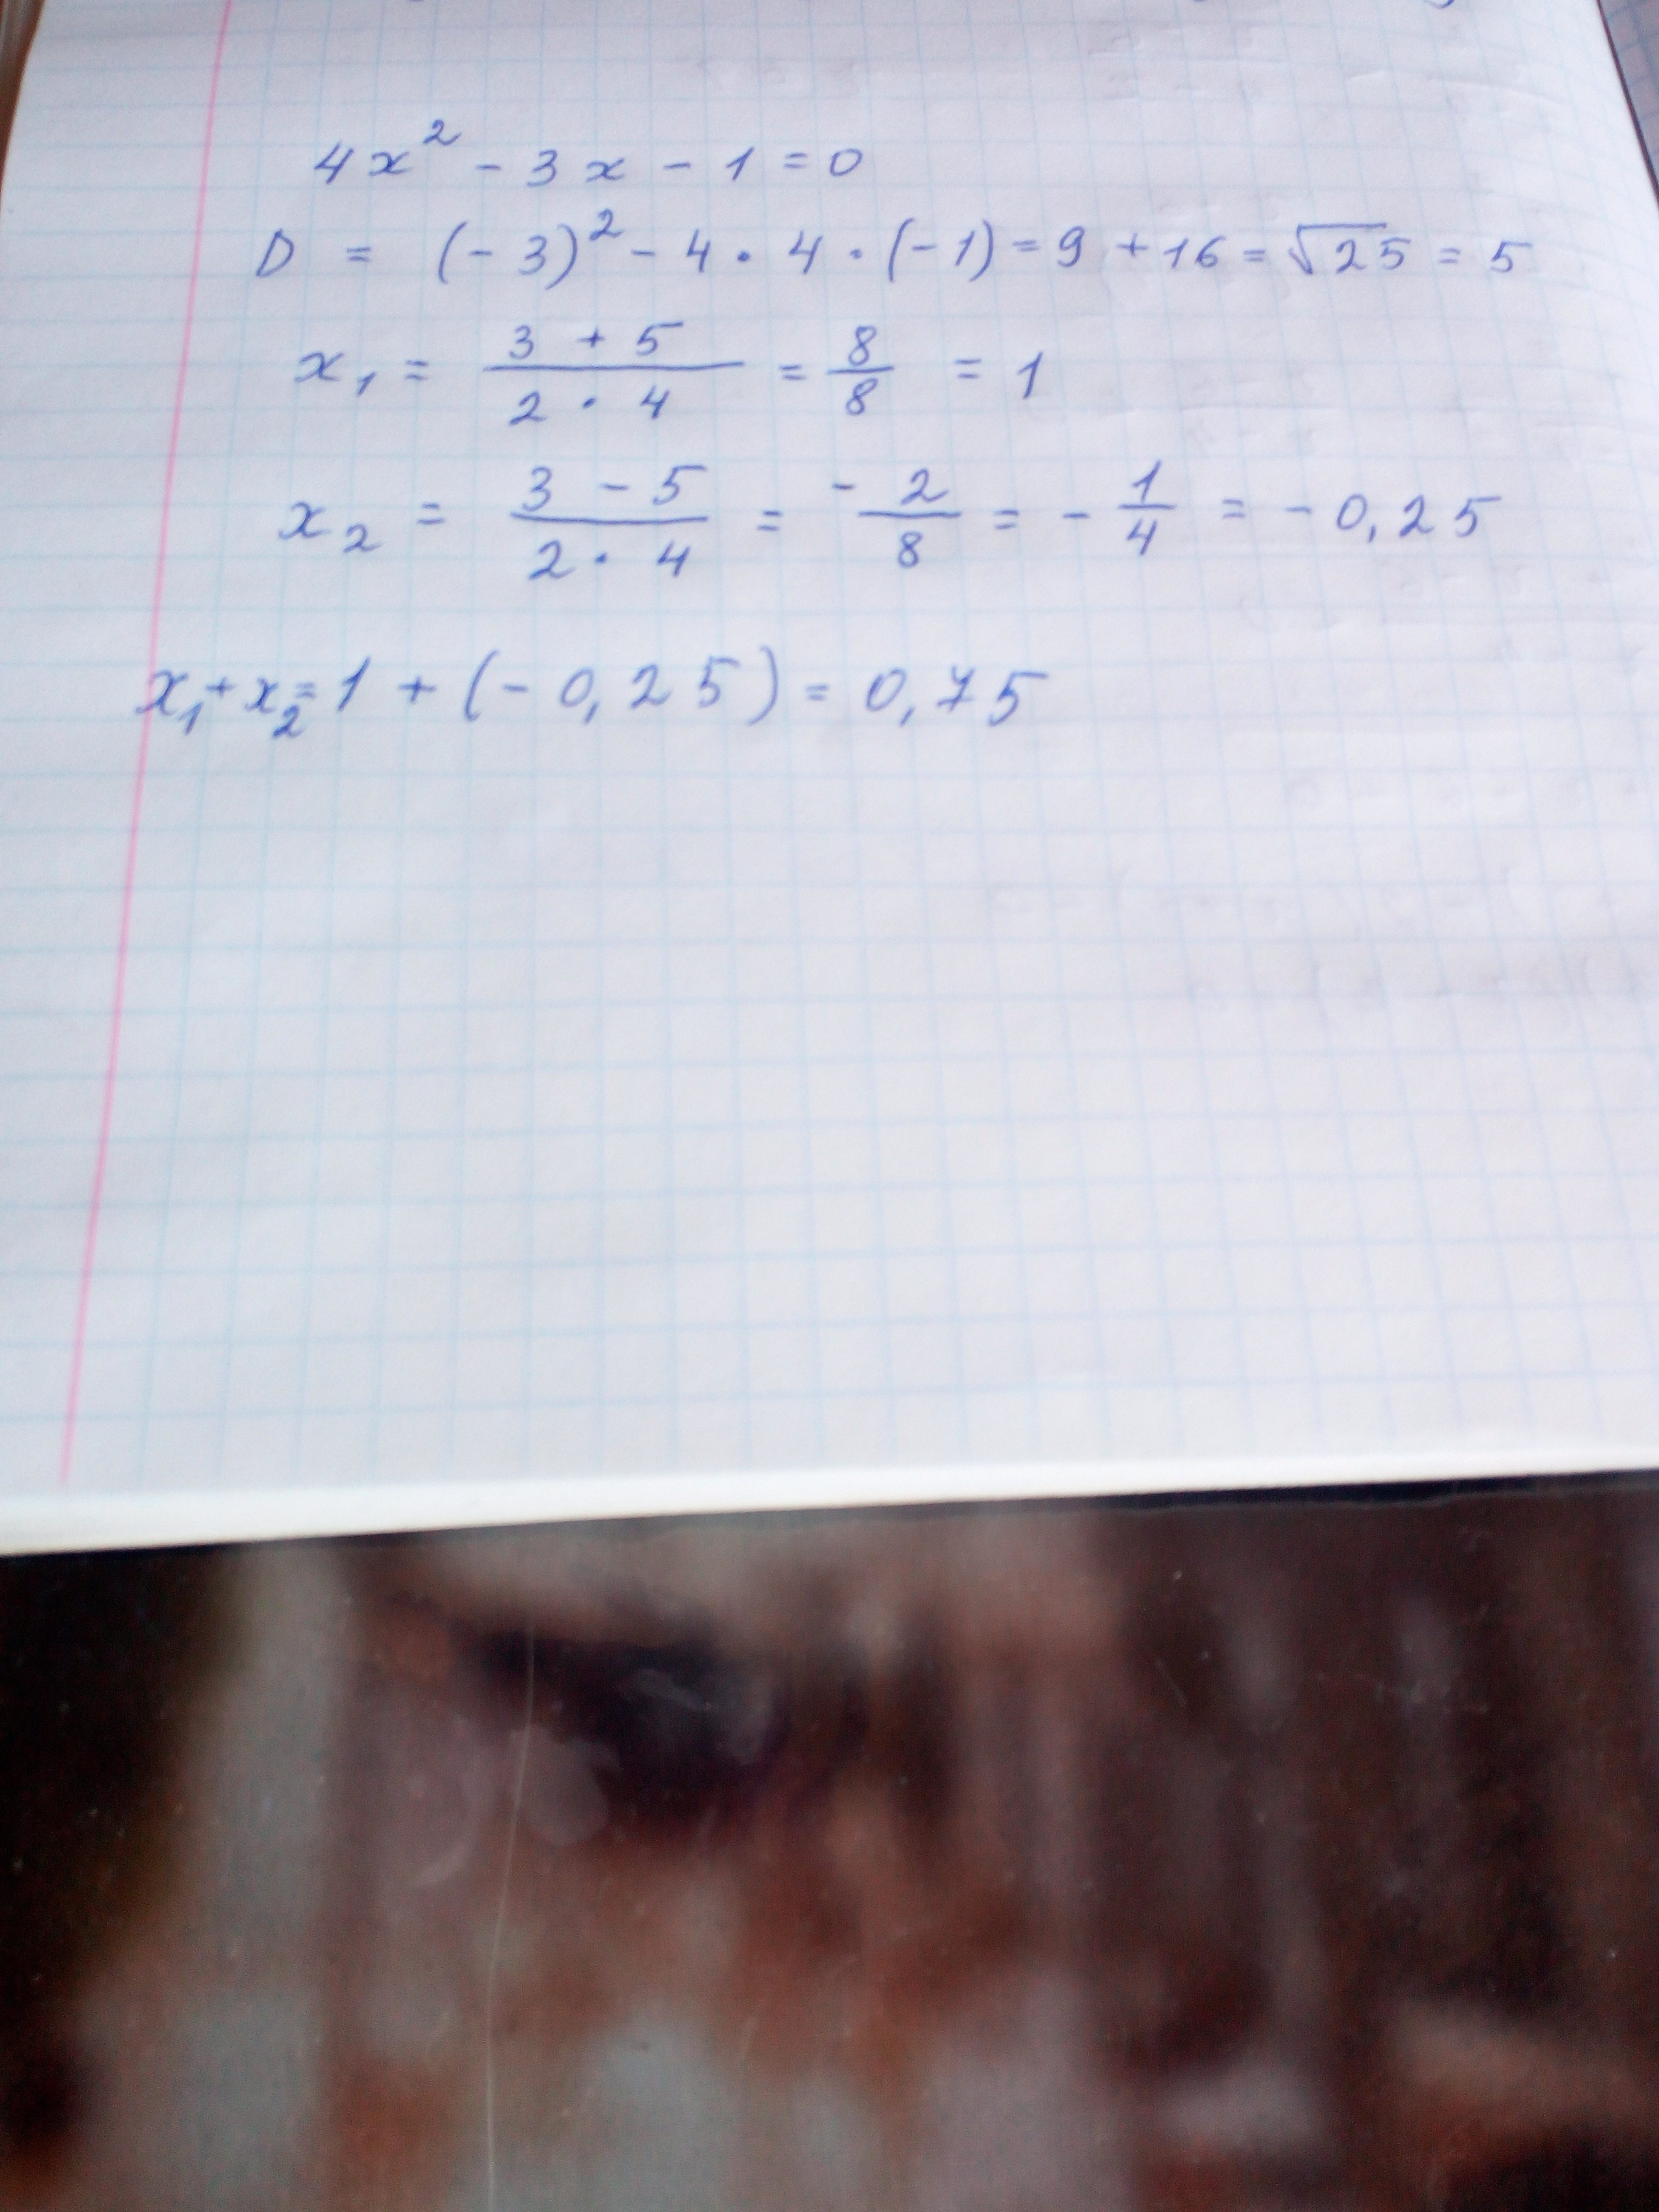 4x² - 3x - 1 = 0
D = (-3)² - 4 · 4 · (-1) = 9 + 16 = √25 = 5
x₁ = (3 + 5)/(2 · 4) = 8/8 = 1
x₂ = (3 - 5)/(2 · 4) = -2/8 = -1/4 = -0,25
x₁ + x₂ = 1 + (-0,25) = 0,75